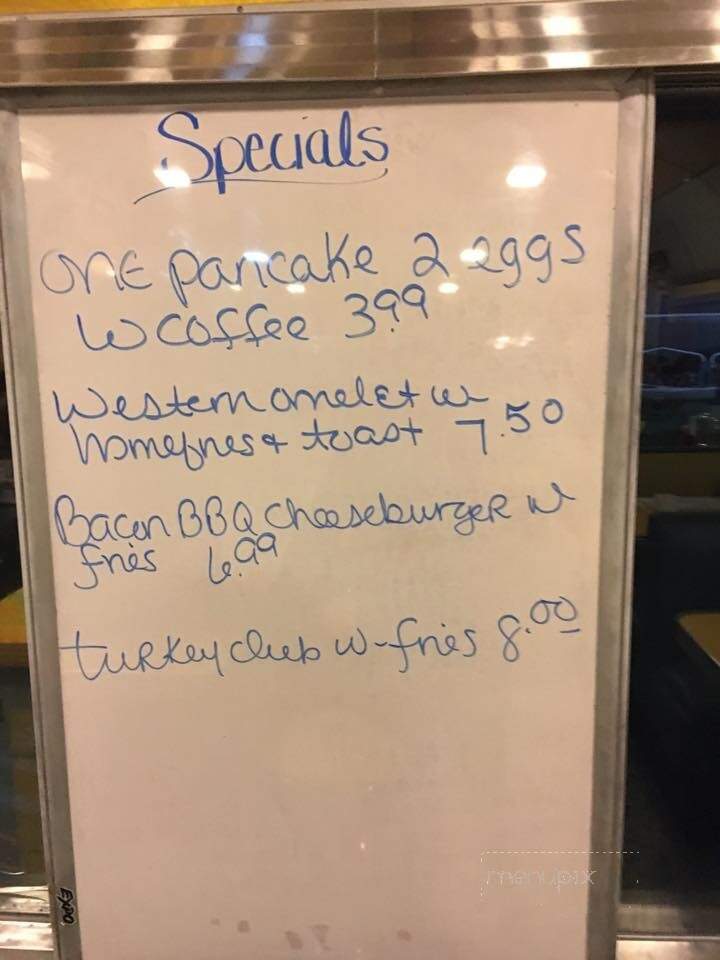 Specials
One pancake 2 eggs
w coffee 3.99
Western omelet w
homefries & toast 7.50
Bacon BBQ Cheeseburger w
fries 6.99
turkey club w-fries 8.00
menupix
EXPO